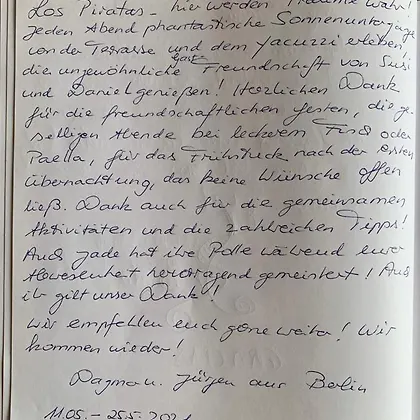 Los Piratas - hier werden Träume wahr!
Jeden Abend phantastische Sonnenuntergänge
von der Terrasse und dem Jacuzzi erleben,
die ungewöhnliche Gast-Freundschaft von Susi
und Daniel genießen! Herzlichen Dank
für die freundschaftlichen Gesten, die ge-
selligen Abende bei leckerem Fisch oder
Paella, für das Frühstück nach der ersten
Übernachtung, das keine Wünsche offen
ließ. Dank auch für die gemeinsamen
Aktivitäten und die zahlreichen Tipps!
Auch Jade hat ihre Rolle während eurer
Abwesenheit hervorragend gemeistert! Auch
ihr gilt unser Dank!
Wir empfehlen euch gerne weiter! Wir
kommen wieder!
Dagmar u. Jürgen aus Berlin
11.05. - 25.5. 2021